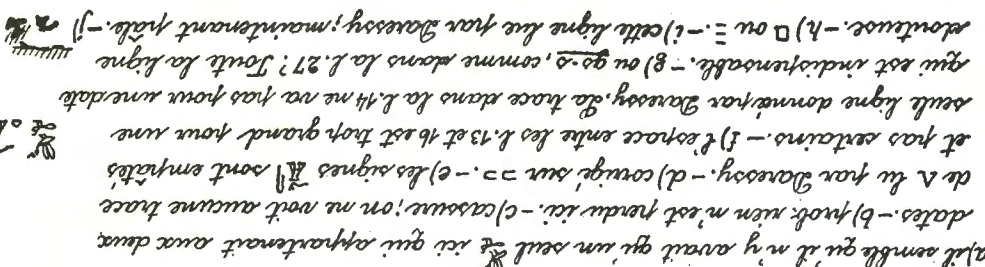 a) il semble qu'il n'y avait qu'un seul ici qui appartenait aux deux
dates. – b) prob. rien n'est perdu ici. – c) cassure; on ne voit aucune trace
de Λ lu par Daressy. – d) corrigé sur ⊃⊃. – e) les signes sont empâtés
et pas certains. – f) l'espace entre les l. 13 et 16 est trop grand pour une
seule ligne donnée par Daressy. La trace dans la l. 14 ne va pas pour une date
qui est indispensable. – g) ou gs-s, comme dans la l. 27? Toute la ligne
douteuse. – h) □ ou Ξ. – i) cette ligne lue par Daressy; maintenant pâle. – j)